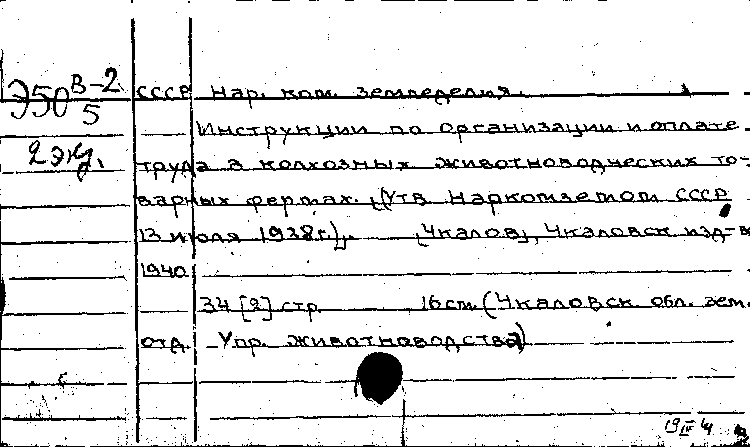 Э50 В-2
5
2 экз.
СССР Нар. ком. земледелия.
Инструкции по организации и оплате
труда в колхозных животноводческих то-
варных фермах. (Утв. Наркомземом СССР
13 июля 1938 г.). [Чкалов], Чкаловск. изд-во
1940.
34 [2] стр. 16 см. (Чкаловск. обл. зем.
отд. Упр. животноводства)